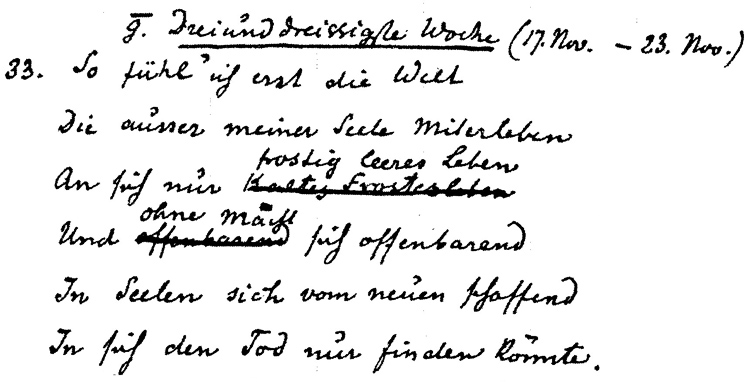 g. Dreiunddreissigste Woche (17. Nov. – 23. Nov.)
33. So fühl' ich erst die Welt
Die ausser meiner Seele Miterleben
frostig leeres Leben
An sich nur Kaltes Frostesleben
ohne Macht
Und offenbarend sich offenbarend
In Seelen sich vom neuen schaffend
In sich den Tod nur finden könnte.